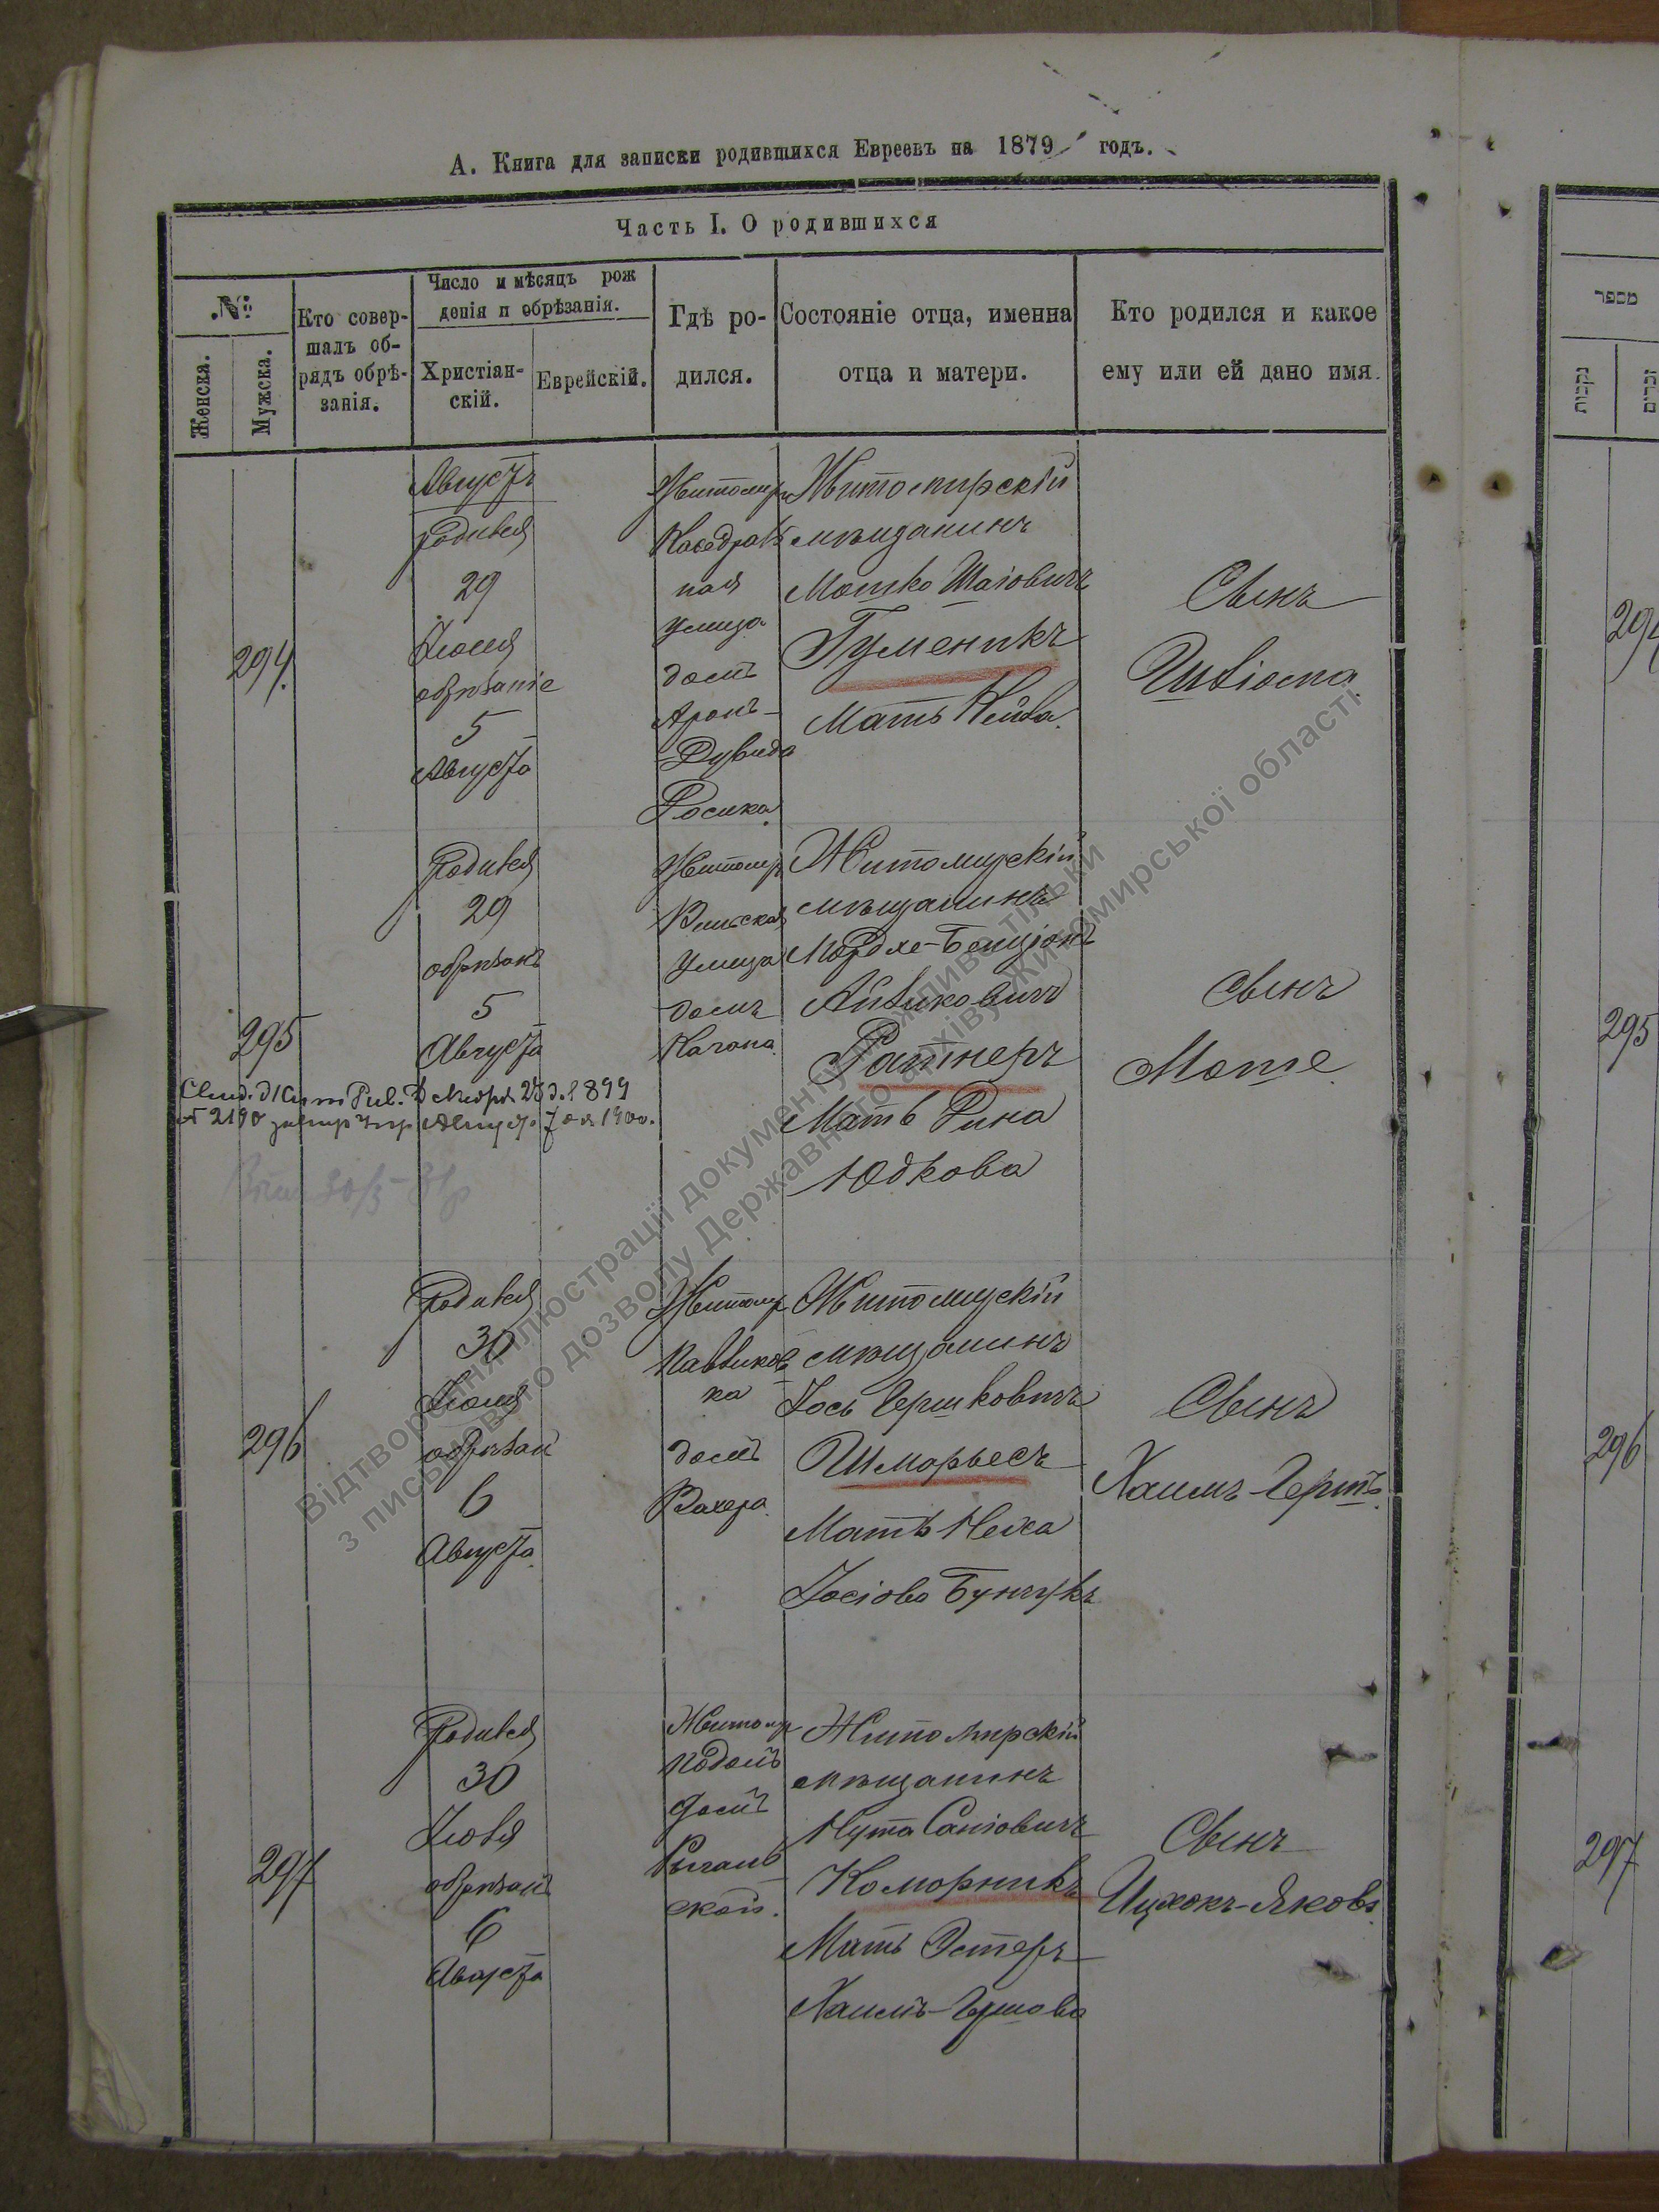 А. Книга для записки родившихся Евреевъ на 1879 годъ.
Часть I. О родившихся
№
Женска.
Мужска.
Кто совер-
шалъ об-
рядъ обрѣ-
занія.
Число и мѣсяцъ рож
денія и обрѣзанія.
Христіан-
скій.
Еврейскій.
Гдѣ ро-
дился.
Состояніе отца, именна
отца и матери.
Кто родился и какое
ему или ей дано имя.
294
Августъ
Родився
29
Іюля
обрѣзаніе
5
Августа
Житомиръ
Каѳедраль
ная
улица
домъ
Аронъ-
Дувида
Росика
Житомирскій
мѣщанинъ
Мошко Шаіовичъ
Гуменикъ
Мать Нейха
Сынъ
295
Родився
29
обрѣзанъ
5
Августа
Житомир
Вильская
улица
домъ
Кагана
Житомирскій
мѣщанинъ
Мордхе-Бенціонъ
Айзиковичъ
Ратнеръ
Мать Рина
Юдкова
Сынъ
Моше
296
Родився
30
Іюля
обрѣзан
6
Августа
Житомир
Павликов
ка
домъ
Вахера
Житомирскій
мѣщанинъ
Іось Гершковичъ
Шморьесъ
Мать Неха
Іосіова Бунчукъ
Сынъ
Хаимъ-Гершъ
297
Родився
30
Іюля
обрѣзанъ
6
Августа
Житомир
Подолъ
домъ
ской.
Житомирскій
мѣщанинъ
Нута
Коморникъ
Мать Эстеръ
Хаимъ-Гершова
Сынъ
Ицхокъ-Яковъ
מספר
נקבות
זכרים
294
295
296
297
Відтворення ілюстрації документу можливо тільки
з письмового дозволу Державного архіву Житомирської області